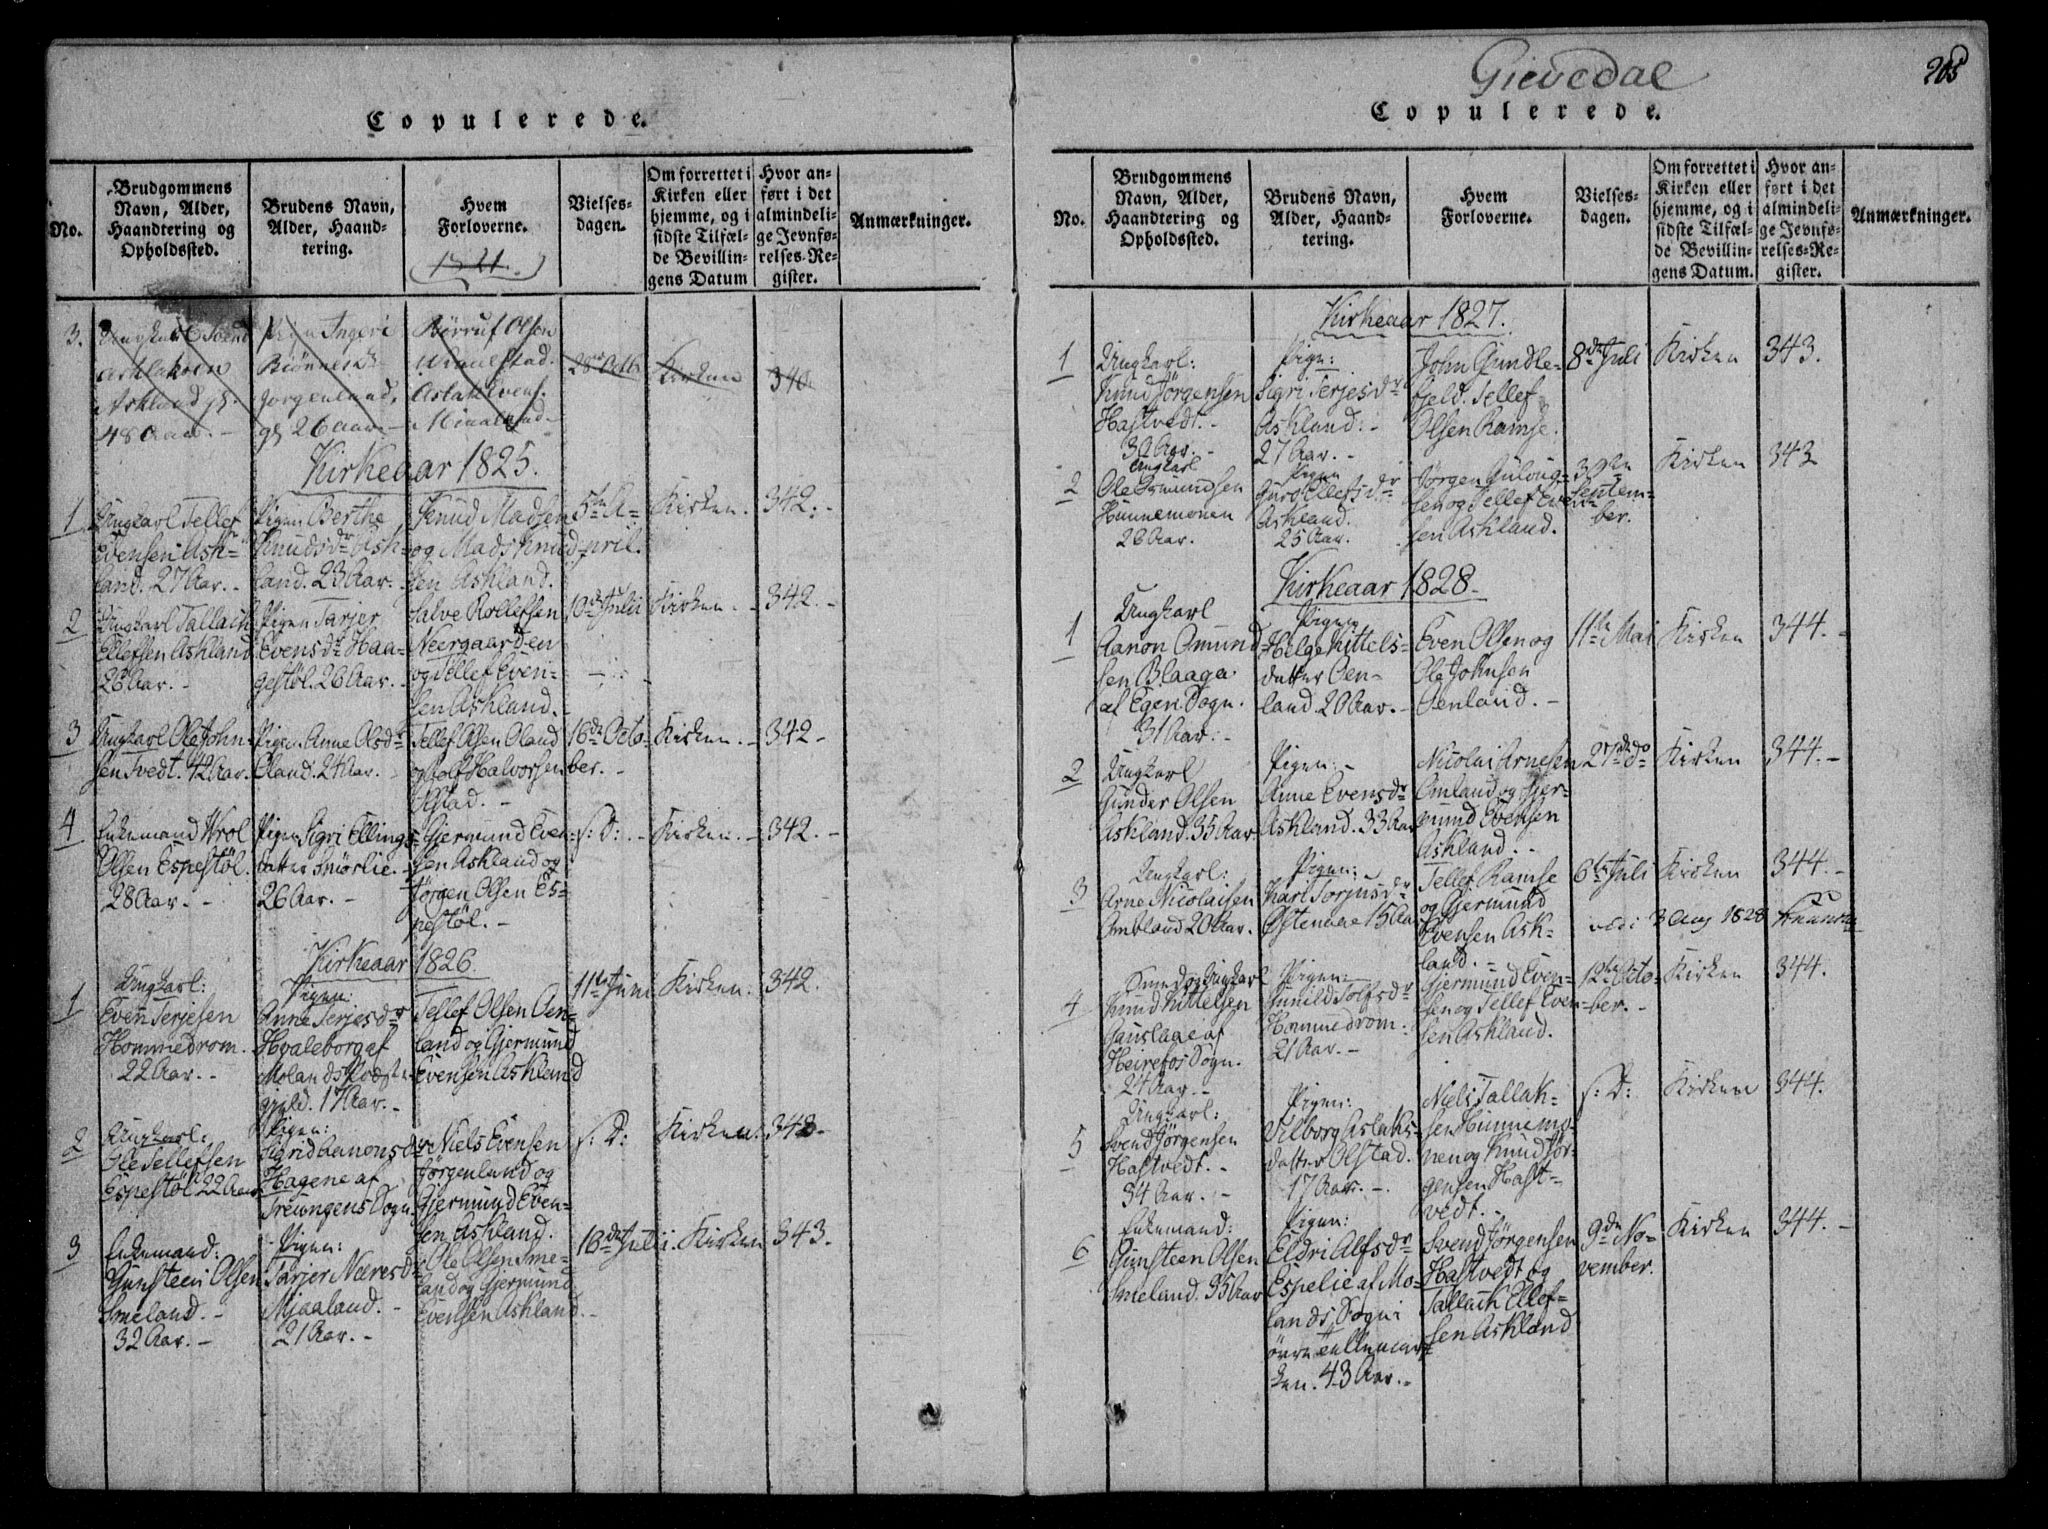 Copulerede.
No.
Brudgommens
Navn, Alder,
Haandtering og
Opholdssted.
Brudens Navn,
Alder, Haand-
tering.
Hvem
Forloverne.
Vielses-
dagen.
Om forrettet i
Kirken eller
hjemme, og i
sidste Tilfæl-
de Bevillin-
gens Datum
Hvor an-
ført i det
almindeli-
ge Jevnfø-
relses-Re-
gister.
Anmærkninger.
3.
Aslaksen
Askland
48 Aar. -
Pigen Ingeri
Jørgenland,
26 Aar -
Olsen
Aslak Evens.
28de Octb
Kirken
340
Kirkeaar 1825.
1
Ungkarl Tellef
Evensen Ask-
land. 27 Aar. -
Pigen Berthe
Knudsdr Ask-
land. 23 Aar. -
Knud Madsen
og Mads Knud-
sen Askland.
5te A-
pril.
Kirken.
342. -
2
Ungkarl Tallach
Ellefsen Askland
26 Aar. -
Pigen Tarjer
Evensdr Haa-
gestøl. 26 Aar. -
Salve Rollefsen
Neergaarden
og Tellef Even-
sen Askland. -
10de Julii
Kirken. -
342. -
3
Ungkarl Ole John-
sen Tvedt. 42 Aar.
Pigen Anne Olsdr
Oland. 24 Aar. -
Tellef Olsen Oland
og Halvorsen
Olstad. -
16de Octo-
ber. -
Kirken. -
342 -
4
Enkemand Wrol
Olsen Espestøl.
28 Aar. -
Pigen Sigri Ellings-
datter Smørlie. -
26 Aar. -
Gjermund Even-
sen Askland og
Jørgen Olsen Es-
pestøl. -
s: D: -
Kirken. -
342. -
Kirkeaar 1826.
1
Ungkarl:
Even Terjesen
Hommedrom.
22 Aar. -
Pigen:
Anne Terjesdr
Hvaleborg af
Molands Præste-
gjeld. 17 Aar. -
Tellef Olsen Oen-
land og Gjermund
Evensen Askland
11te Juni
Kirken.
342.
2
Ungkarl:
Ole Tellefsen
Espestøl 22 Aar
Pigen:
Sigrid Aanonsdr
Hagene af
Treungens Sogn.
Niels Evensen
Jørgenland og
Gjermund Even-
sen Askland.
s: D:
Kirken.
343 -
3
Enkemand:
Gunsteen Olsen
Smeland. -
32 Aar. -
Pigen:
Tarjer Neresdr
Mjaaland. -
21 Aar. -
Ole Olsen Sme-
land og Gjermund
Evensen Askland -
16de Julii.
Kirken
343. -
Gievedal
205
Copulerede.
No.
Brudgommens
Navn, Alder,
Haandtering og
Opholdssted.
Brudens Navn,
Alder, Haand-
tering.
Hvem
Forloverne.
Vielses-
dagen.
Om forrettet i
Kirken eller
hjemme, og i
sidste Tilfæl-
de Bevillin-
gens Datum.
Hvor an-
ført i det
almindeli-
ge Jevnfø-
relses-Re-
gister.
Anmærkninger.
Kirkeaar 1827.
1
Ungkarl:
Knud Jørgensen
Hastvedt. -
30 Aar. -
Pige:
Sigri Terjesdr
Askland. -
27 Aar. -
John Gundle-
fjeld. Tellef
Olsen Ramse.
8de Juli
Kirken
343.
2
Ungkarl
Ole Omundsen
Hunnemonen
26 Aar.
Pigen
Guro Ellefsdr
Askland.
25 Aar.
Jørgen
sen og Tellef Even-
sen Askland.
Septem-
ber.
Kirken
343
Kirkeaar 1828.
1
Ungkarl
Aanon Omund-
sen Blaaga
af Egen Sogn.
31 Aar. -
Pigen
Helge Kittels-
datter Oen-
land. 20 Aar. -
Even Olsen og
Ole Johnsen
Oenland. -
11te Mai
Kirken
344. -
2
Ungkarl
Gunder Olsen
Askland. 35 Aar
Pigen: -
Anne Evensdr
Askland. 33 Aar
Nicolai Arnesen
Omland og Gjer-
mund Evensen
Askland. -
27de do
Kirken
344. -
3
Ungkarl:
Arne Nicolaisen
Omland 20 Aar.
Pigen:
Kari Torjusdr
Østenaae 15 Aar
Tellef Ramse
og Gjermund
Evensen Ask-
land. -
6te Juli
Kirken
344. -
3 Aug 1828
4
Smed og Ungkarl
Knud Kittelsen
Hauslaae af
Heirefos Sogn.
24 Aar. -
Pigen:
Gunild Tolfsdr
Hommedrom.
21 Aar. -
Gjermund Even-
sen og Tellef Even-
sen Askland.
12te Octo-
ber. -
Kirken
344.
5
Ungkarl:
Svend Jørgensen
Hastvedt. -
34 Aar. -
Pigen:
Vilborg Aslaks-
datter Olstad.
17 Aar. -
Niels Tallak-
sen Hunnemo-
nen og Knud Jør-
gensen Hast-
vedt. -
s: D:
Kirken
344.
6
Enkemand:
Gunsteen Olsen
Smeland. 35 Aar
Pigen:
Eldri Alfsdr
Espelie af Mo-
lands Sogn i
øvre Tellemar-
ken. 43 Aar. -
Svend Jørgensen
Hastvedt og
Tallack Ellef-
sen Askland
9de No-
vember.
Kirken
344. -